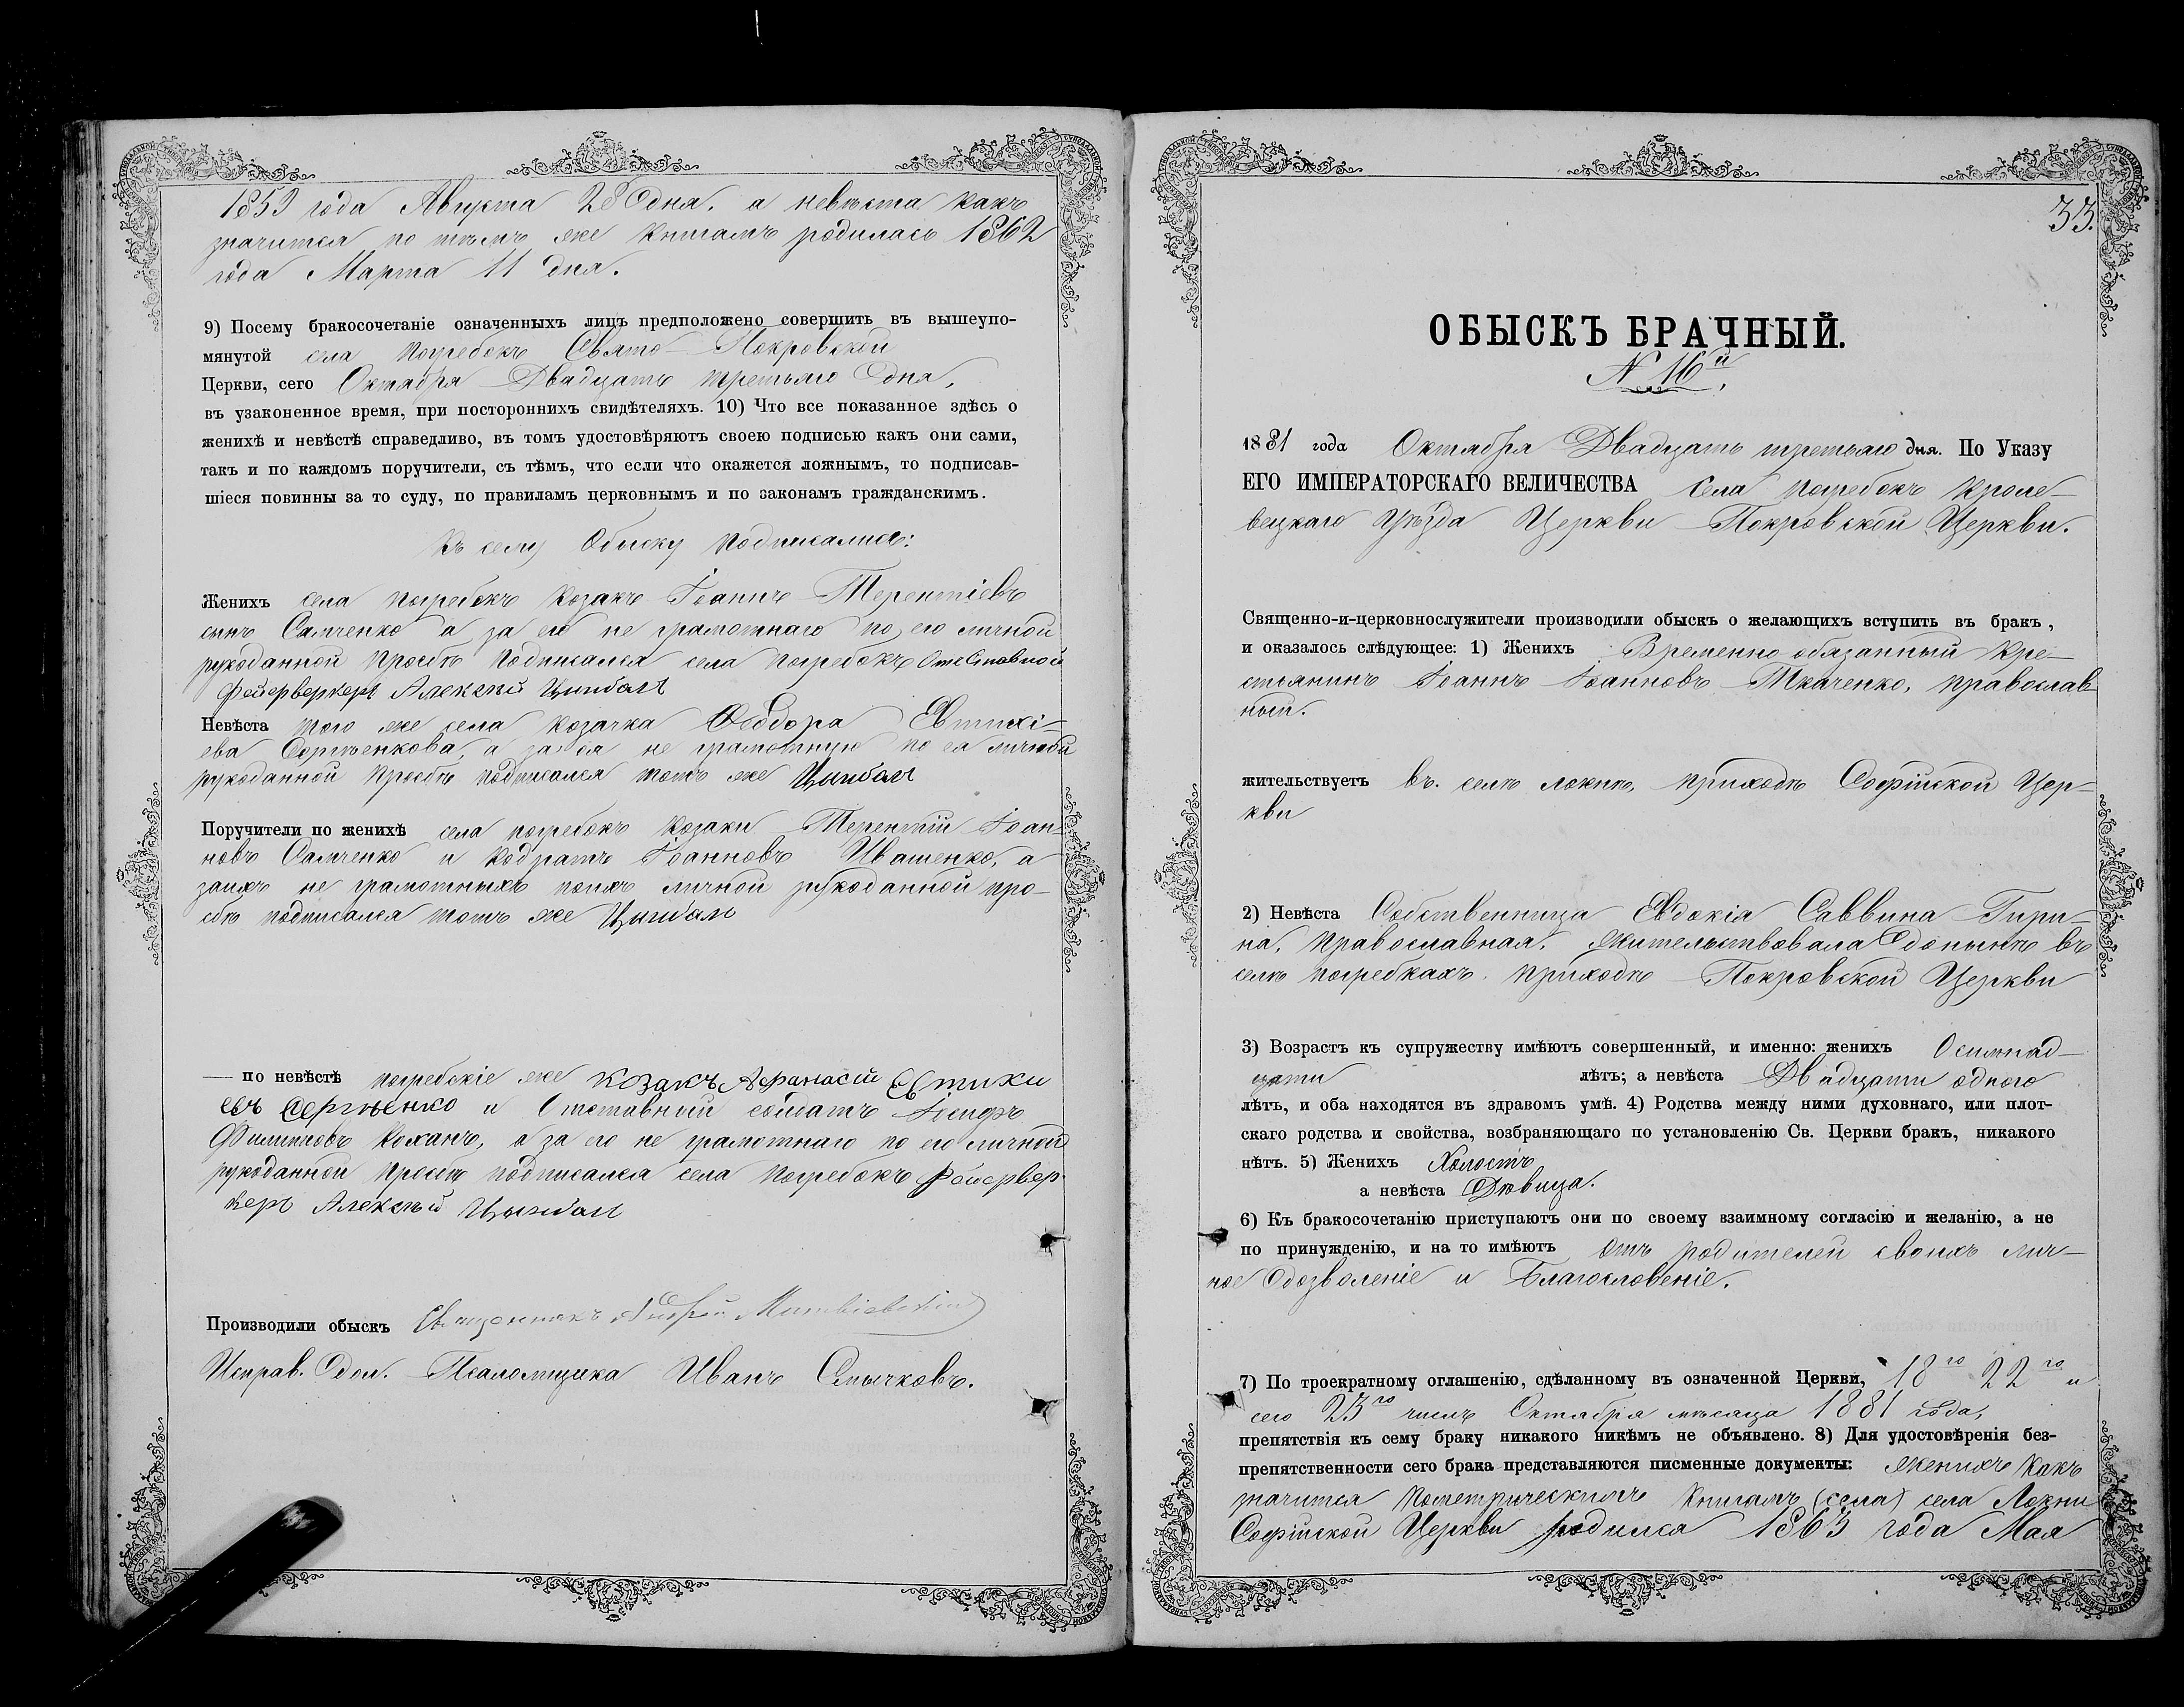 1859 года Августа 28 дня. а невѣста какъ
значится по тѣмъ же книгамъ родилась 1862
года Марта 11 дня.
9) Посему бракосочетаніе означенныхъ лицъ предположено совершить въ вышеупо-
мянутой села Погребокъ Свято-Покровской
Церкви, сего Октября Двадцать третьяго дня,
въ узаконенное время, при постороннихъ свидѣтеляхъ. 10) Что все показанное здѣсь о
женихѣ и невѣстѣ справедливо, въ томъ удостовѣряютъ своею подписью какъ они сами,
такъ и по каждомъ поручители, съ тѣмъ, что если что окажется ложнымъ, то подписав-
шіеся повинны за то суду, по правиламъ церковнымъ и по законамъ гражданскимъ.
Къ сему Обыску подписались:
Женихъ села Погребокъ козакъ Іоаннъ Терентіевъ
сынъ Самченко а за его не грамотнаго по его личной
рукоданной прозбѣ подписался села Погребокъ Отставной
фейерверкеръ Алексѣй Цымбал
Невѣста того же села козачка Феодора Евтихі-
ева Сергѣенкова, а за ея не грамотную по ея личной
рукоданной прозбѣ подписался тотъ же Цымбал
Поручители по женихѣ села погребокъ козаки Терентій Іоан-
новъ Самченко и Кодратъ Іоанновъ Ивашенко, а
заихъ не грамотныхъ поихъ личной рукоданной про-
сбѣ подписался тотъ же Цымбал
— по невѣстѣ погребскіе же козакъ Афанасій Евтихи
евъ Сергѣенко и Отставный солдатъ Іосифъ
Филипповъ Коханъ, а за его не грамотнаго по его личной
рукоданной прозбѣ подписался села Погребокъ фейервер-
керъ Алексѣй Цымбал
Производили обыскъ Священникъ Андрей
Исправ. дол. Псаломщика Иванъ Смычковъ.
33.
ОБЫСКЪ БРАЧНЫЙ.
N 16й
1881 года Октября Двадцать третьяго дня. По Указу
ЕГО ИМПЕРАТОРСКАГО ВЕЛИЧЕСТВА села Погребокъ Кроле-
вецкаго Уѣзда Церкви Покровской Церкви.
Священно-и-церковнослужители производили обыскъ о желающихъ вступить въ бракъ,
и оказалось слѣдующее: 1) Женихъ Временно обязанный Кре-
стьянинъ Іоаннъ Іоанновъ Ткаченко, православ
ный.
жительствуетъ въ селѣ Локнѣ, приходѣ Софійской Цер-
кви
2) Невѣста Собственница Евдокія Саввина Гири-
на, православная, жительствовала донынѣ въ
селѣ погребкахъ приходѣ Покровской Церкви
3) Возрастъ къ супружеству имѣютъ совершенный, и именно: женихъ Осимнад-
цати лѣтъ; а невѣста Двадцати одного
лѣтъ, и оба находятся въ здравомъ умѣ. 4) Родства между ними духовнаго, или плот-
скаго родства и свойства, возбраняющаго по установленію Св. Церкви бракъ, никакого
нѣтъ. 5) Женихъ Холостъ
а невѣста Дѣвица.
6) Къ бракосочетанію приступаютъ они по своему взаимному согласію и желанію, а не
по принужденію, и на то имѣютъ отъ родителей своихъ лич-
ное дозволеніе и Благословеніе.
7) По троекратному оглашенію, сдѣланному въ означенной Церкви, 18го 22го и
сего 23го числъ Октября мѣсяца 1881 года,
препятствія къ сему браку никакого никѣмъ не объявлено. 8) Для удостовѣренія без-
препятственности сего брака представляются писменные документы: женихъ какъ
значится пометрическимъ Книгамъ (села) села Локни
Софійской Церкви родился 1863 года Мая